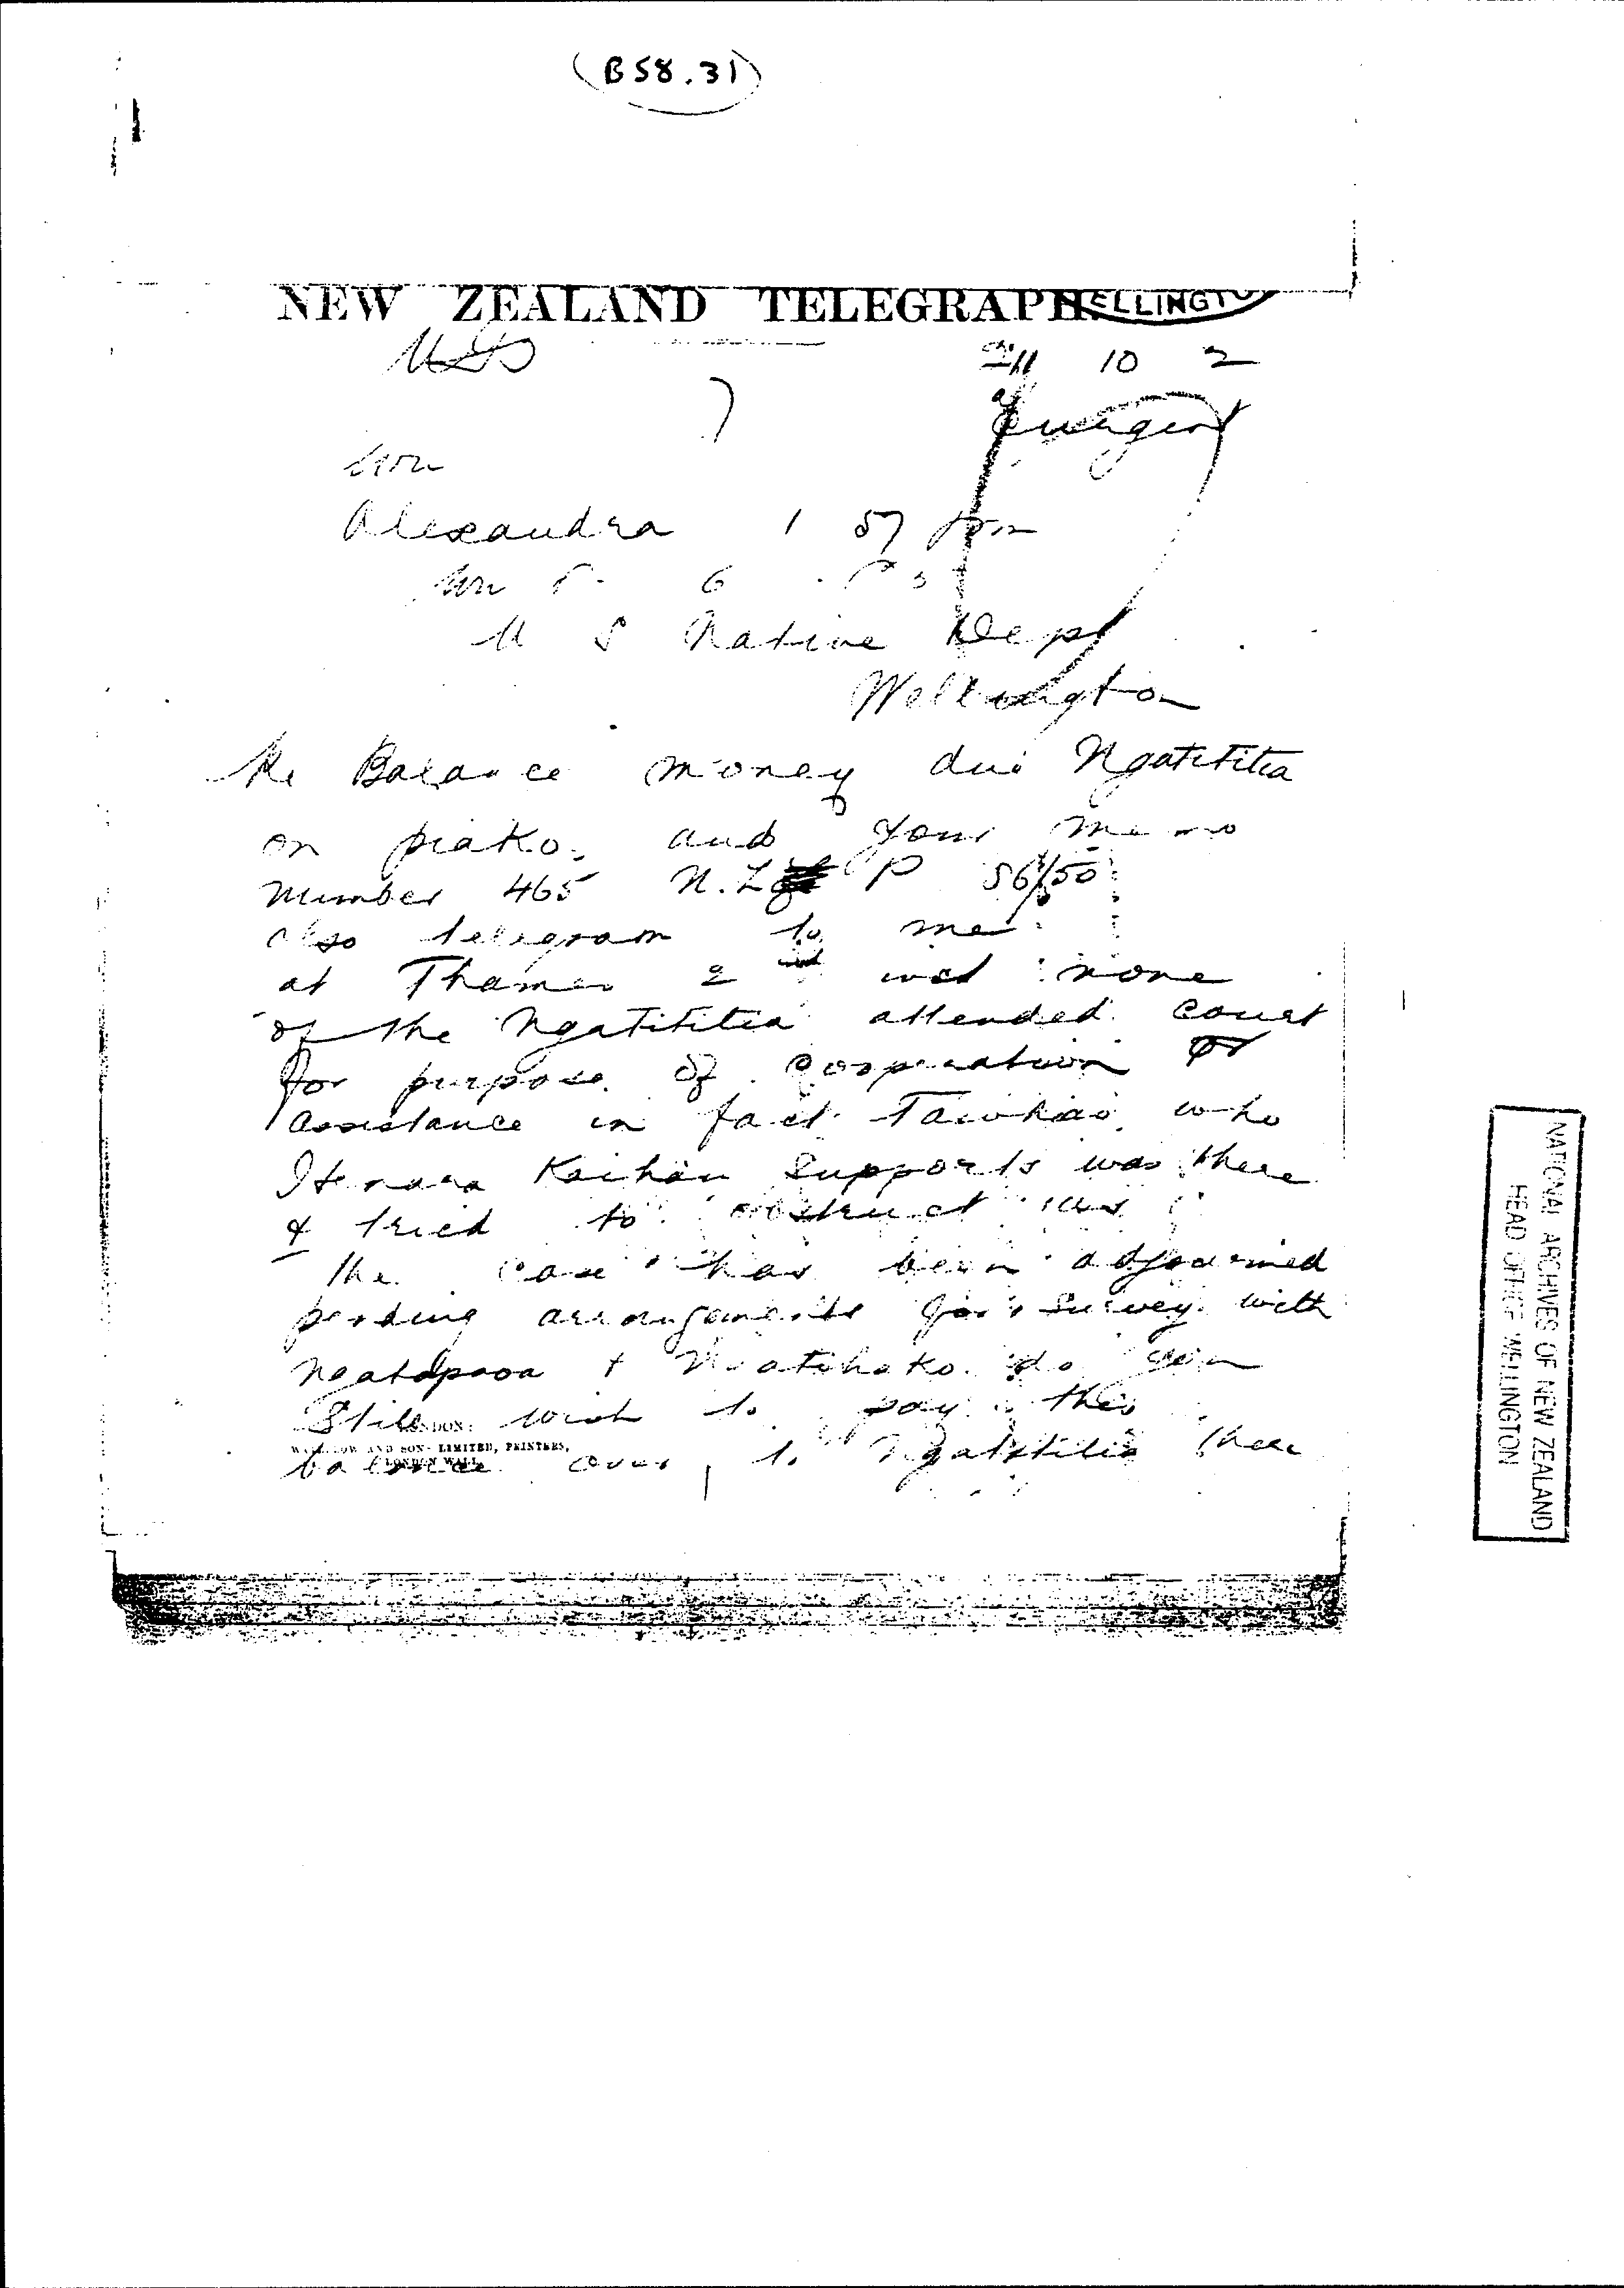 (B58.31)
NEW ZEALAND TELEGRAPH
WELLINGTO
10 2
urgent
Alexandra 1 57 pm
U S Native Dept
Wellington
Re Balance money due Ngatititia
on piako. and your memo
number 465 N.L P 86/50
also telegram to me
at Thames 2 inst none
of the Ngatititia attended court
for purpose of cooperation or
assistance in fact Tawhiao who
Kaihau supports was there
& tried to obstruct us
the case has been adjourned
pending arrangements for survey with
Ngatipaoa + Ngatihako. do you
Still wish to pay this
LONDON:
AND SON LIMITED, PRINTERS,
LONDON WALL
balance over to Ngatitilia
NATIONAL ARCHIVES OF NEW ZEALAND
HEAD OFFICE WELLINGTON